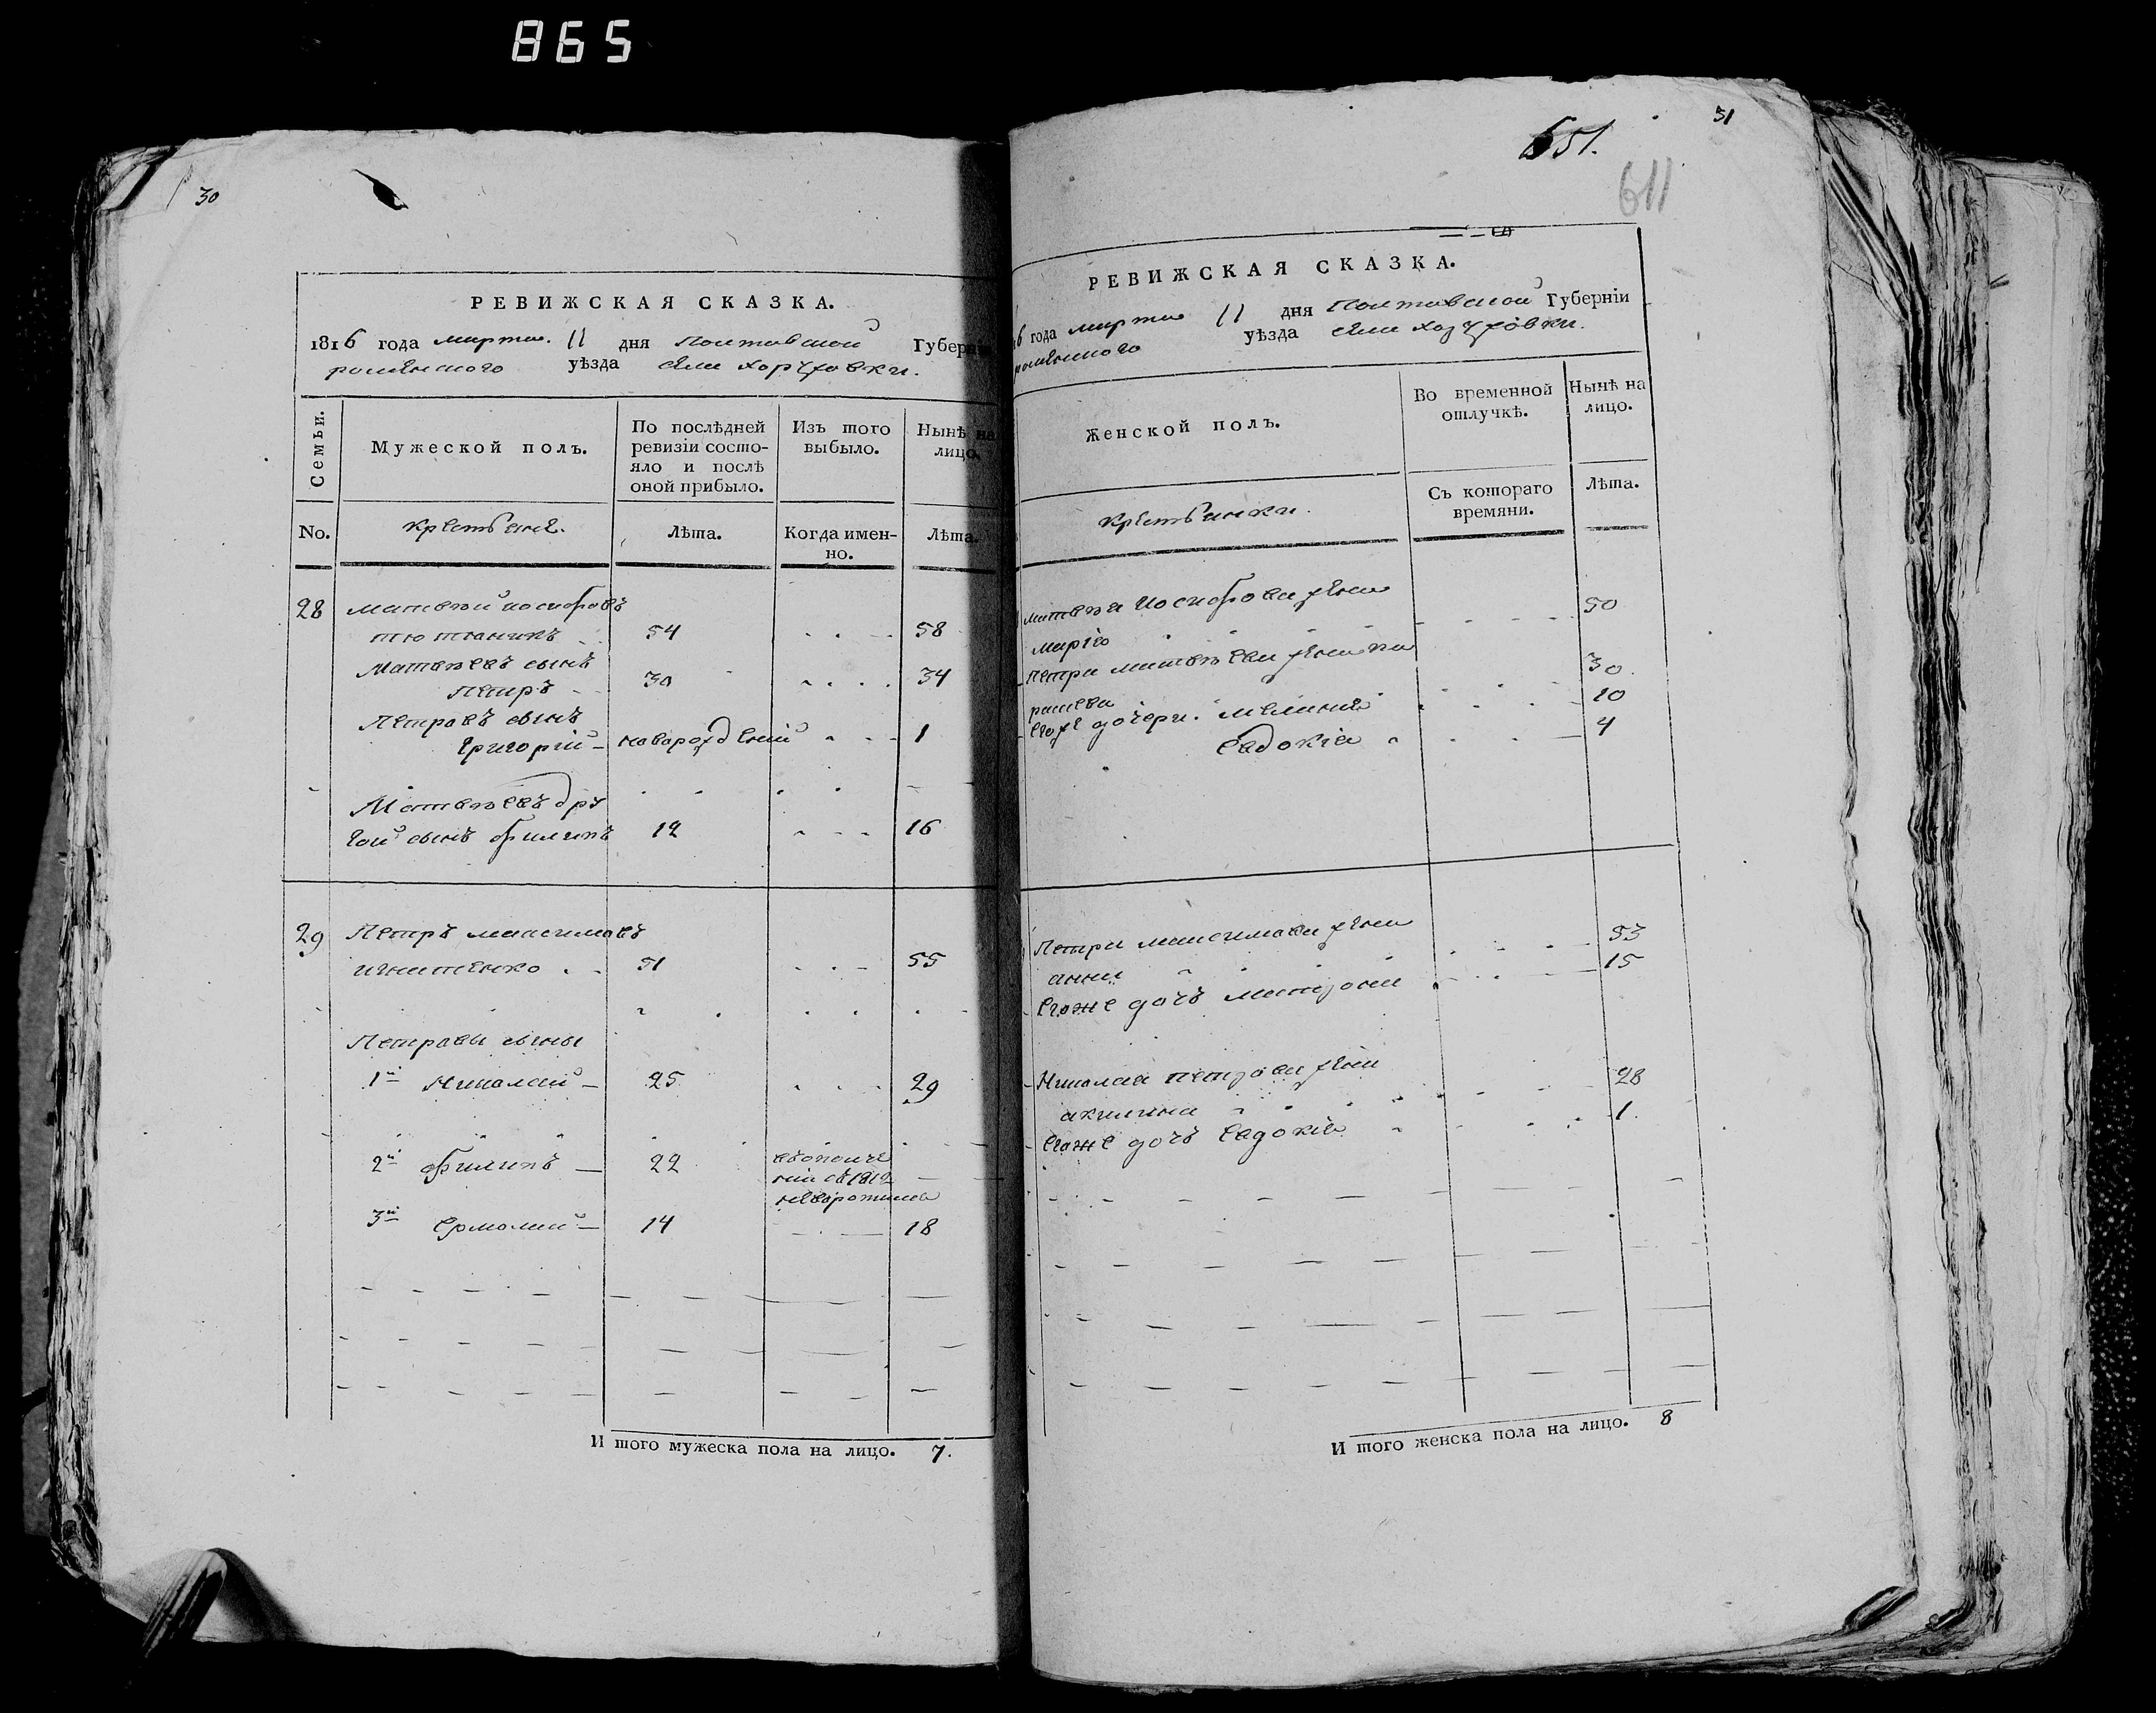 865
30
РЕВИЖСКАЯ СКАЗКА.
1816 года марта 11 дня Полтавской Губерніи
роменского уѣзда села хоружовки.
Семьи.
Мужеской полъ.
По послѣдней ревизіи состо-
яло и послѣ
оной прибыло.
Изъ того
выбыло.
Нынѣ на
лицо.
No.
крестьяне.
Лѣта.
Когда имен-
но.
Лѣта.
28 матвѣй иосифовъ
54 58
матвѣевъ сынъ
петръ 30 34
Петровъ сынъ
григорій новорожденій 1
Матвѣевъ дру
гой сынъ филипъ 12 16
29 Петръ максимовъ
игнатенко 51 55
Петровы сыны
1й Николай 25 29
2й филипъ 22
3й ермолай 14 18
И того мужеска пола на лицо. 7.
31
651.
611
РЕВИЖСКАЯ СКАЗКА.
6 года марта 11 дня Полтавской Губерніи
роменского уѣзда села хоружовки.
Женской полъ.
Во временной
отлучкѣ.
Нынѣ на
лицо.
крестьянки.
Съ котораго
времяни.
Лѣта.
матвѣя иосифова жена
марія 50
петра матвѣева жена па
раскева 30
егоже дочери. меланія 10
евдокія 4
Петра максимова жена
анна 53
егоже дочь матрона 15
Николая петрова жена
акилина 28
егоже дочь евдокія 1
И того женска пола на лицо. 8